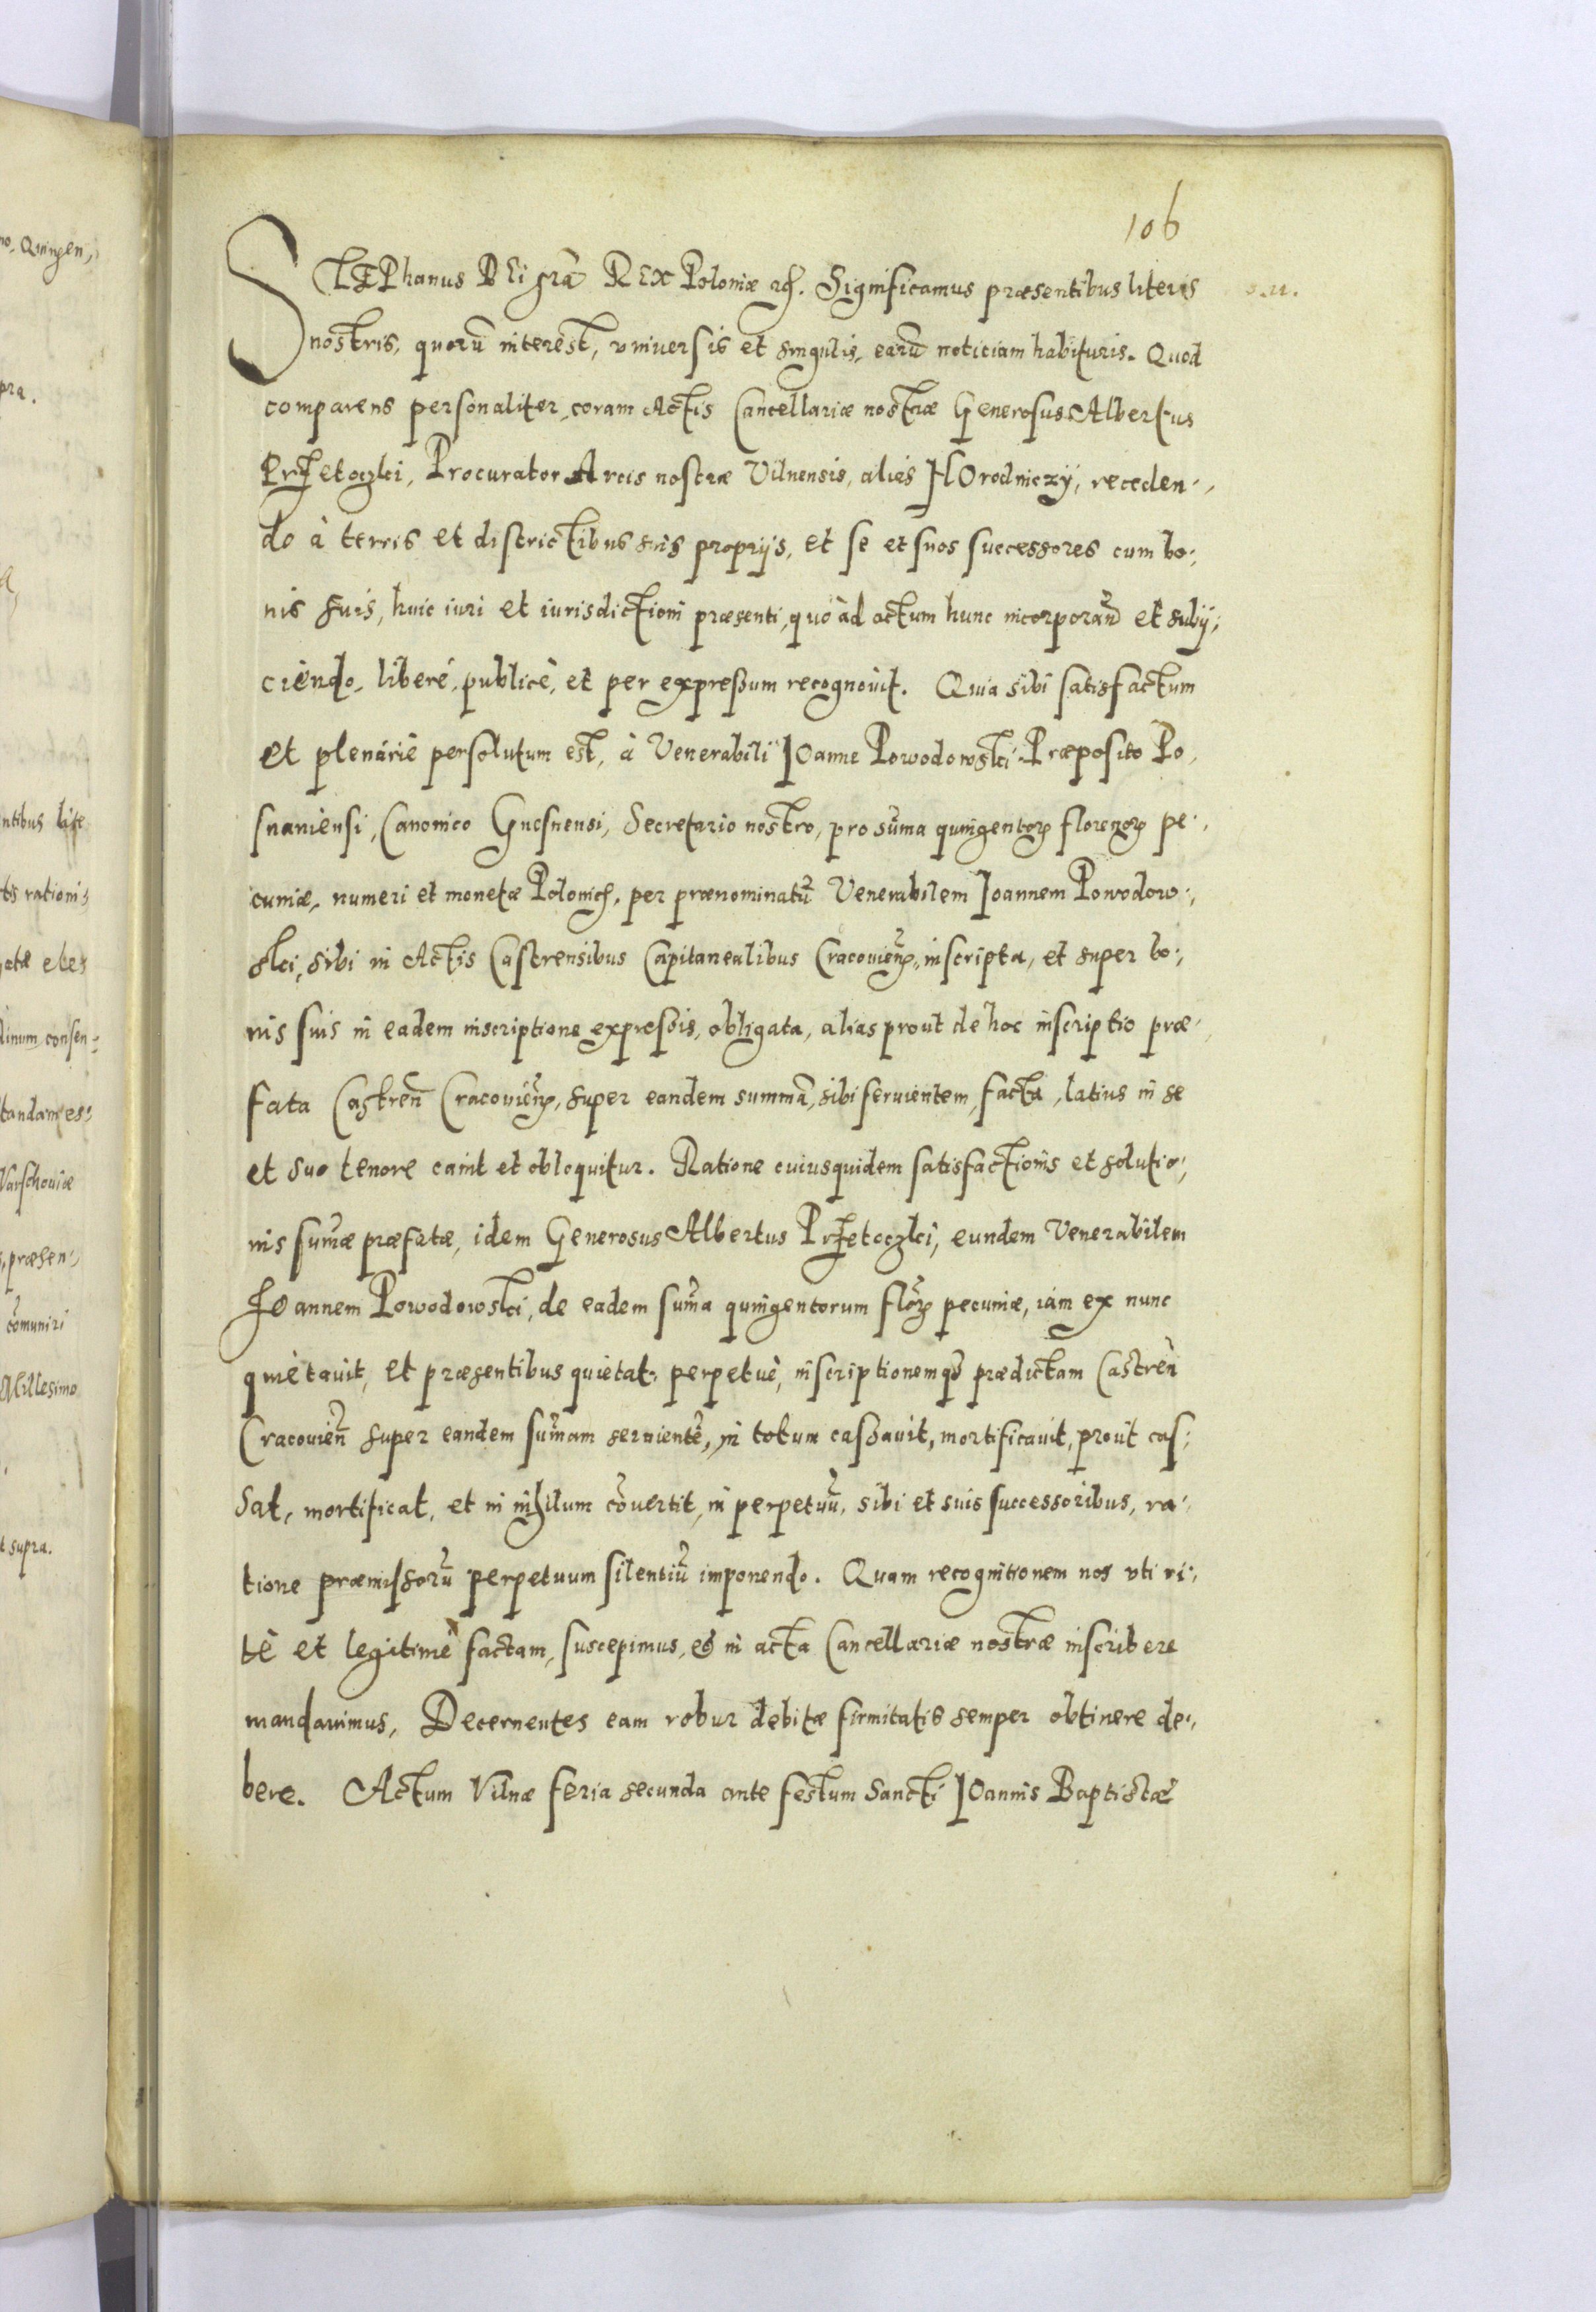 106
STEPhanus DEi gr̃a REX Poloniæ etc. Significamus præsentibus literis
nostris, quorũ interest, vniuersis et singulis, earũ noticiam habituris. Quod
comparens personaliter, coram Actis Cancellariæ nostræ Generosus Albertus
Przetoczki, Procurator Arcis nostræ Vilnensis, alias HOrodniczÿ, receden-,
do à terris et districtibus suis proprÿs, et se et suos successores cum bo-,
nis suis, huic iuri et iurisdictioni præsenti, quò ad actum hunc incorporañ et subÿ-,
ciendo, liberè, publicè, et per expreßum recognouit. Quia sibi satisfactum
et plenariè persolutum est, à Venerabili IOanne Powodowski Præposito Po,
snaniensi, Canonico Gnesnensi, Secretario nostro, pro sum̃a quingentoꝝ florenoꝝ pe-,
cuniæ, numeri et monetæ Polonic̃, per prænominatũ Venerabilem Ioannem Powodow-,
ski, sibi in Actis Castrensibus Capitanealibus Cracouieñ, inscripta, et super bo-,
nis suis in eadem inscriptione expressis, obligata, alias prout de hoc inscriptio præ-,
fata Castreñ Cracouieñ, super eandem summã, sibi seruientem, facta, latius in se
et suo tenore canit et obloquitur. Ratione cuiusquidem satisfactionis et solutio-,
nis sum̃æ præfatæ, idem Generosus Albertus Przetoczki, eundem Venerabilem
Ioannem Powodowski, de eadem sum̃a quingentorum floꝝ pecuniæ, iam ex nunc
quietauit, et præsentibus quietat, perpetuè, inscriptionemqꝫ prædictam Castreñ
Cracouieñ super eandem sum̃am seruientẽ, in totum cassauit, mortificauit, prout cas-,
sat, mortificat, et in nihilum cõuertit, in perpetuũ, sibi et suis successoribus, ra-,
tione præmissorũ perpetuum silentiũ imponendo. Quam recognitionem nos vti ri-,
tè et legitimè factam, suscepimus, et in acta Cancellariæ nostræ inscribere
mandauimus, Decernentes eam robur debitæ firmitatis semper obtinere de-,
bere. Actum Vilnæ feria secunda ante festum Sancti IOannis Baptistæ